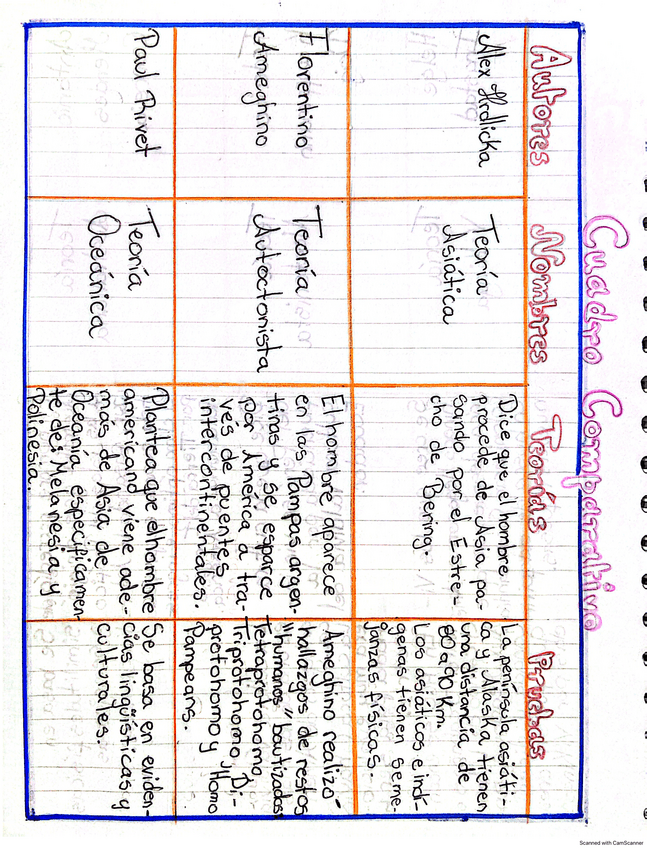 Cuadro Comparativo
Autores
Nombres
Teorías
Pruebas
Alex Hrdlicka
Teoría
Asiática
Dice que el hombre
procede de Asia pa-
sando por el Estre-
cho de Bering.
La península asiáti-
ca y Alaska tienen
una distancia de
80 a 90 Km.
Los asiáticos e indí-
genas tienen seme-
janzas físicas.
Florentino
Ameghino
Teoría
Autoctonista
El hombre aparece
en las Pampas argen-
tinas y se esparce
por América a tra-
vés de puentes
intercontinentales.
Ameghino realizó
hallazgos de restos
"humanos" bautizados
Tetraprotohomo,
Triprotohomo, Di-
protohomo y Homo
Pampeans.
Paul Rivet
Teoría
Oceánica
Plantea que el hombre
americano viene ade-
más de Asia de
Oceanía específicamen-
te de: Melanesia y
Polinesia.
Se basa en eviden-
cias lingüísticas y
culturales.
Scanned with CamScanner